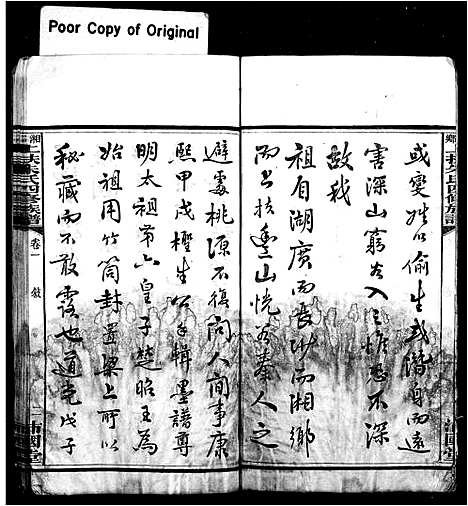 Poor Copy of Original
或變姓以偷生或潛身而遠
害深山窮谷入之惟恐不深
故我
祖自湖廣而長沙而湘鄉
而上扶豐山恍若秦人之
避處桃源不復向人間事康
熙甲戌樫生公手輯墨譜尊
明太祖第六皇子楚昭王為
始祖用竹筒封置梁上所以
秘藏而不敢露也道光戊子
卷一